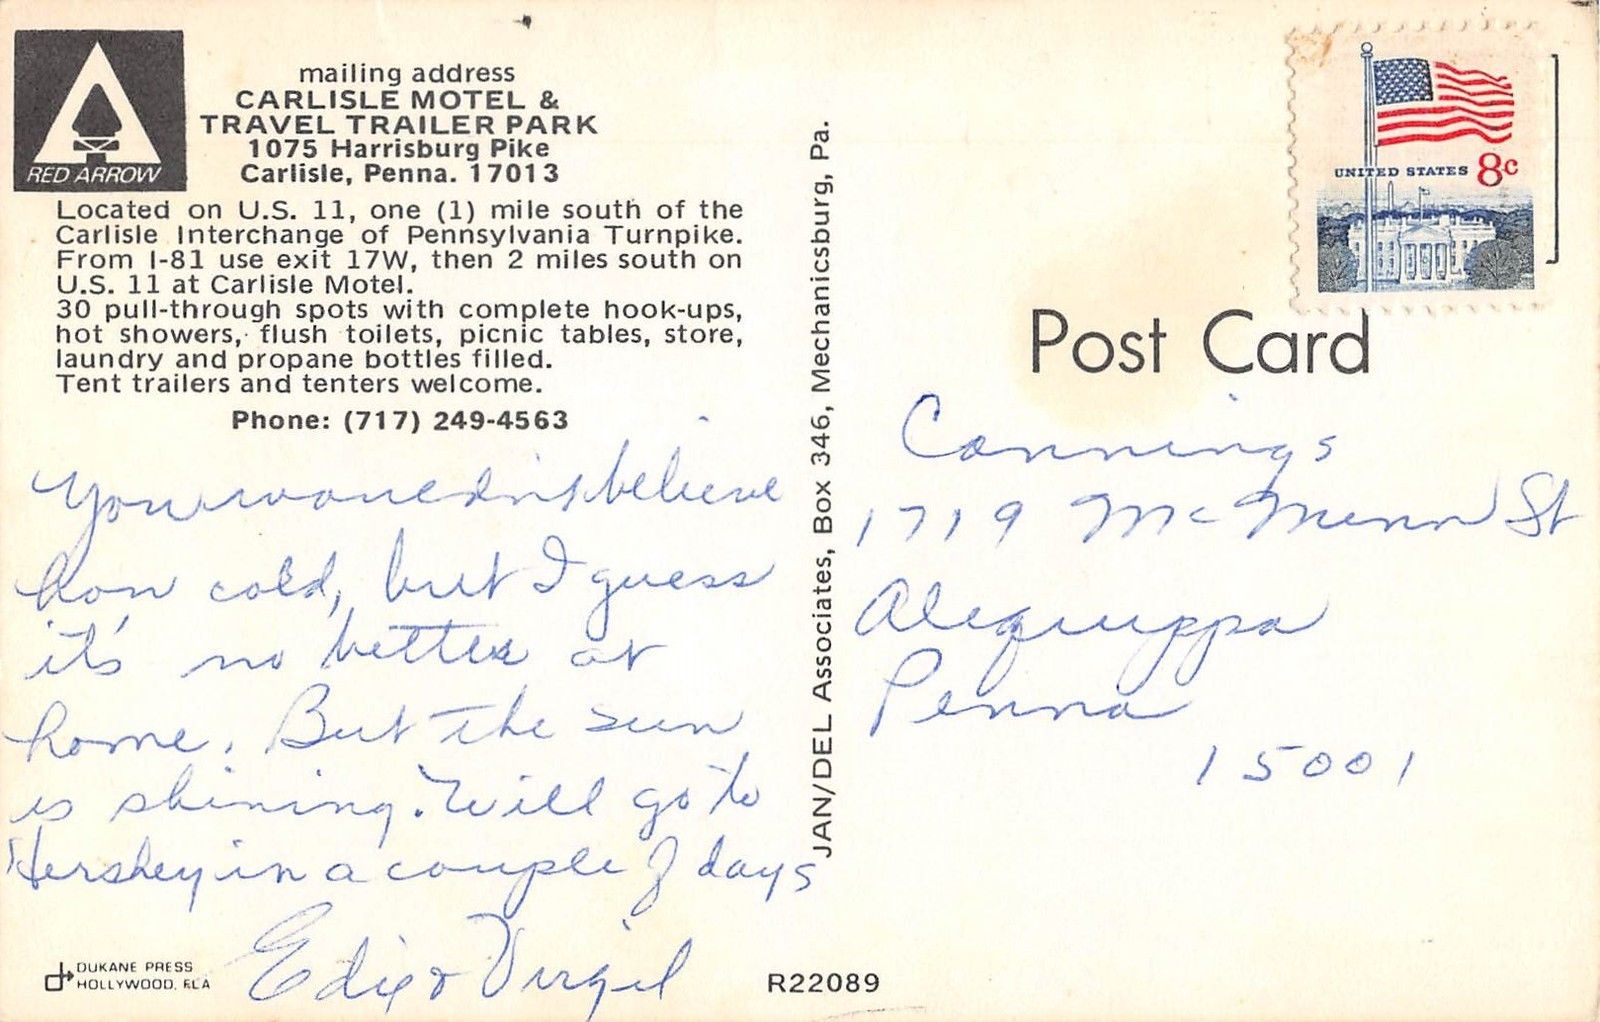 RED ARROW
mailing address
CARLISLE MOTEL &
TRAVEL TRAILER PARK
1075 Harrisburg Pike
Carlisle, Penna. 17013
Located on U.S. 11, one (1) mile south of the
Carlisle Interchange of Pennsylvania Turnpike.
From I-81 use exit 17W, then 2 miles south on
U.S. 11 at Carlisle Motel.
30 pull-through spots with complete hook-ups,
hot showers, flush toilets, picnic tables, store,
laundry and propane bottles filled.
Tent trailers and tenters welcome.
Phone: (717) 249-4563
You wouldn't believe
how cold, but I guess
it's no better at
home. But the sun
is shining. Will go to
Hershey in a couple of days
Edie & Virgil
DUKANE PRESS
HOLLYWOOD, FLA
R22089
JAN/DEL Associates, Box 346, Mechanicsburg, Pa.
UNITED STATES 8c
Post Card
Connings
1719 McMinn St
Aliquippa
Penna
15001